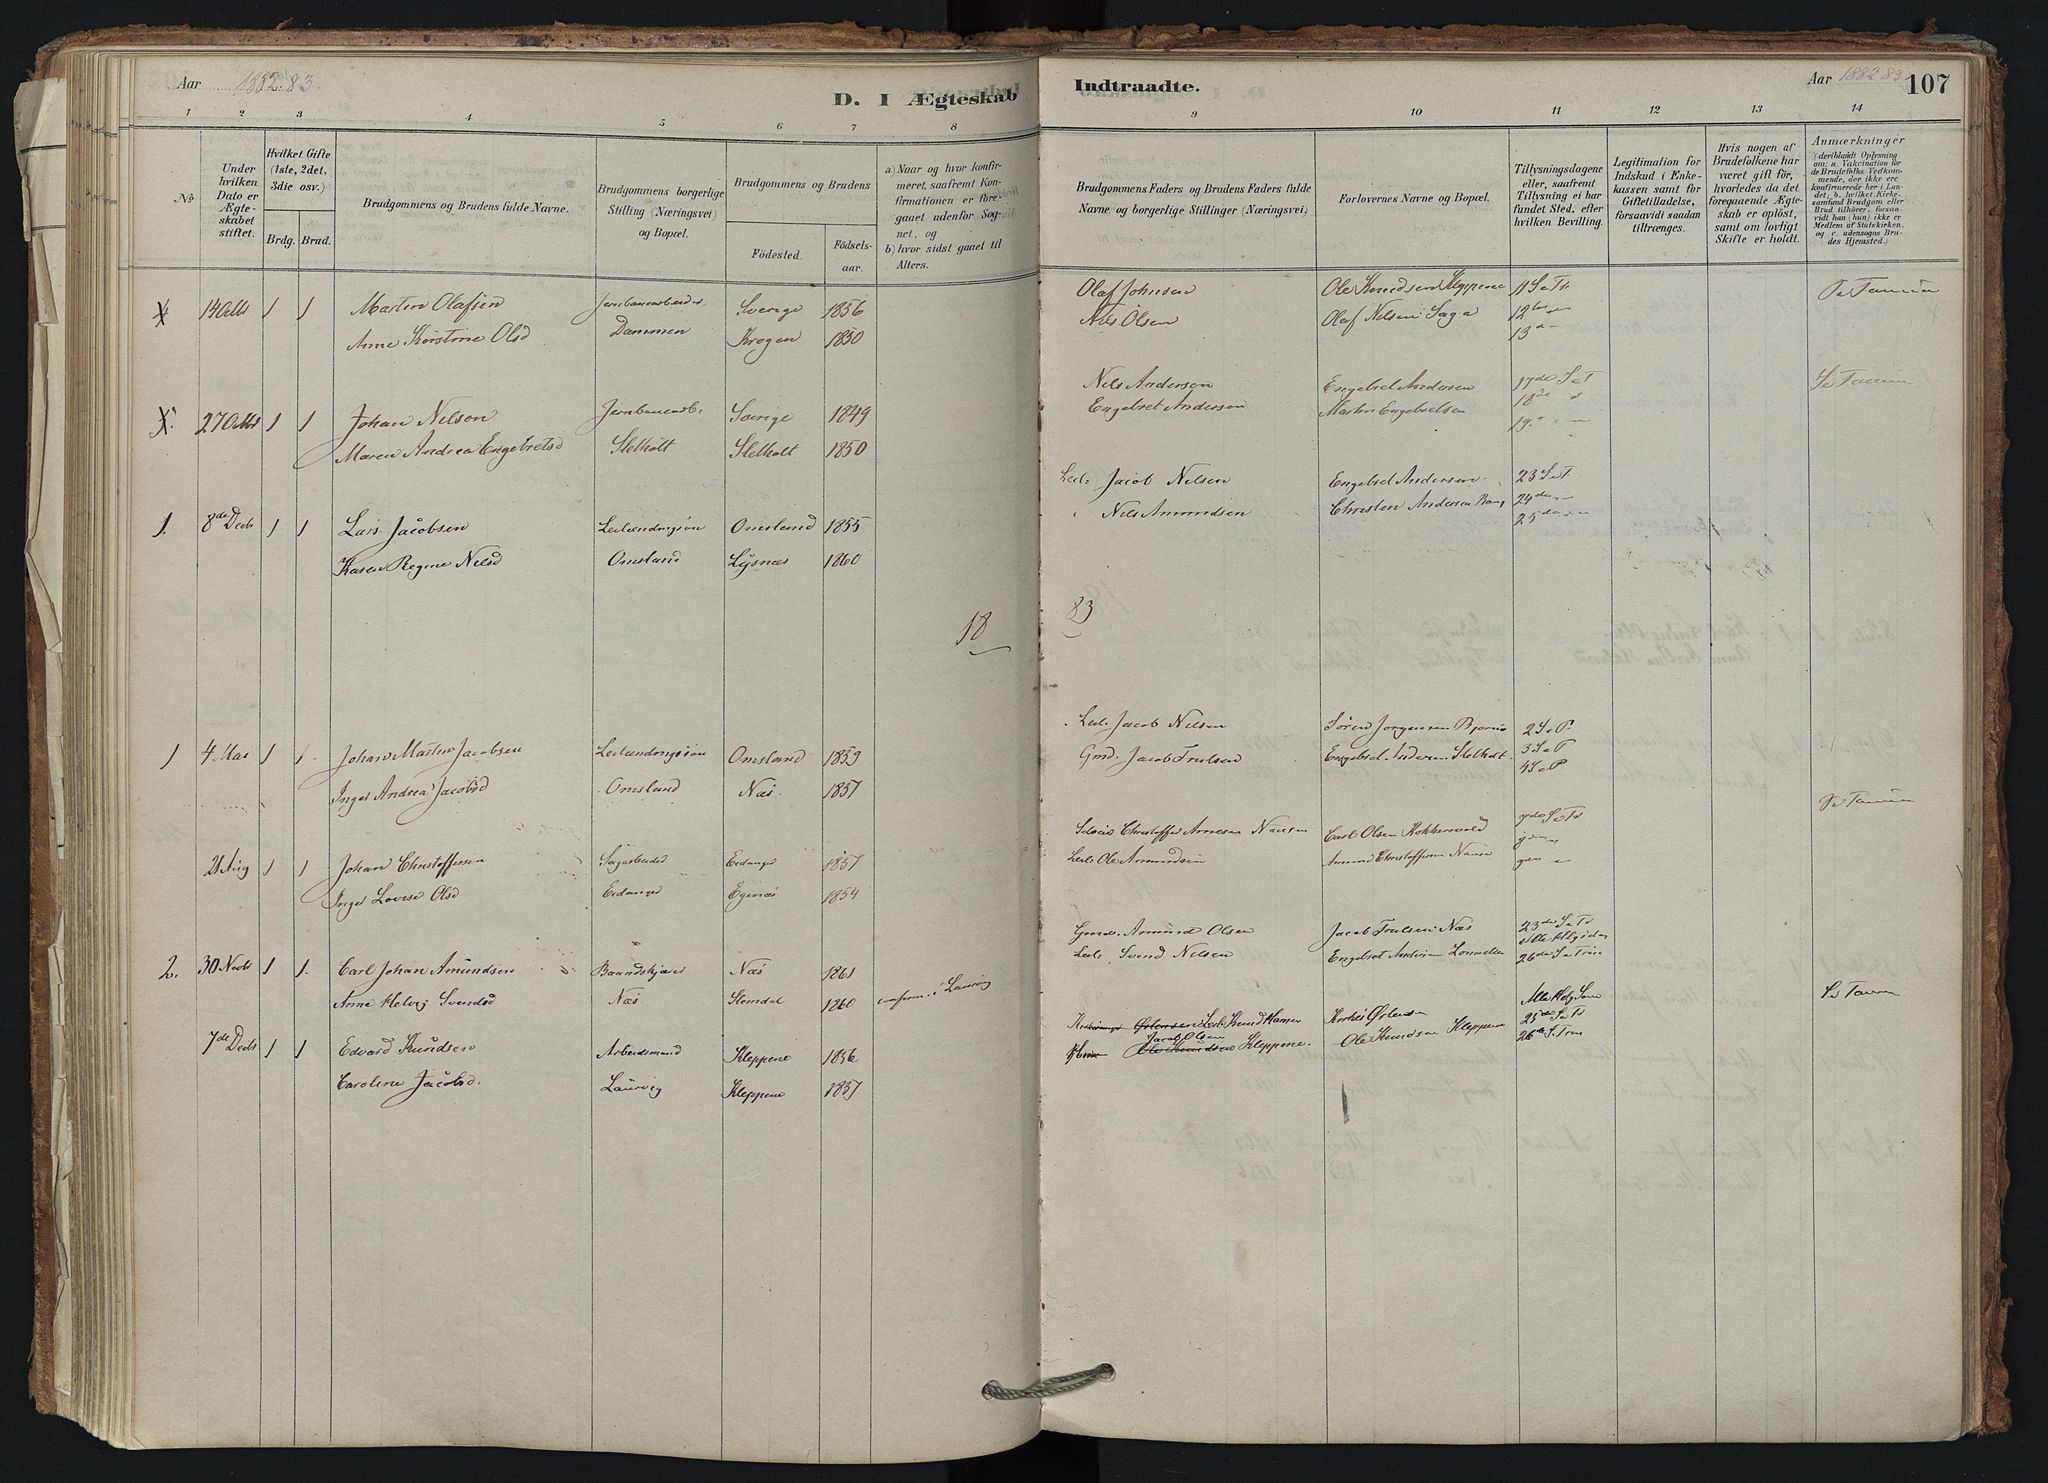 Aar 1882-83.
D. I Ægteskab
1 2 3 4 5 6 7 8
No
Under hvilken Dato er Ægteskabet stiftet.
Hvilket Gifte (1ste, 2det, 3die osv.)
Brdg. Brud.
Brudgommens og Brudens fulde Navne.
Brudgommens borgerlige Stilling (Næringsvei) og Bopæl.
Brudgommens og Brudens
Födested.
Födselsaar.
a) Naar og hvor konfirmeret, saafremt Konfirmationen er foregaaet udenfor Sognet, og
b) hvor sidst gaaet til Alters.
14 Oktb 1 1 Martin Olafsen Jernbanearbeider Sverige 1856
Anne Kirstine Olsd Dammen Krogen 1850
27 Oktb 1 1 Johan Nilson Jernbanearb. Sverige 1849
Maren Andrea Engebretsd Stelholt Stelholt 1850
1. 8de Decb 1 1 Lars Jacobsen Leilændingsön Omsland 1855
Karen Regine Nielsd Omsland Lysnæs 1860
18
1 4 Mai 1 1. Johan Martin Jacobsen Leilændingsön Omsland 1859
Inger Andrea Jacobsd Omsland Næs. 1857
21 Aug 1 1 Johan Christoffersen Sagarbeider Eidanger 1857
Inger Lovise Olsd Eidanger Egenæs 1854
2. 30 Novb 1 1. Carl Johan Amundsen Baandskjærer Næs 1861
Anne Helvig Svendsd Næs Stemdal 1860 confirm. i Laurvig
7de Decb 1 1 Edvard Knudsen Arbeidsmand Kleppene 1856
Caroline Jacobsd. Laurvig Kleppene 1857
Indtraadte.
Aar 1882 83
107
9 10 11 12 13 14
Brudgommens Faders og Brudens Faders fulde Navne og borgerlige Stillinger (Næringsvei.)
Forlovernes Navne og Bopæl.
Tillysningsdagene eller, saafremt Tillysning ei har fundet Sted, efter hvilken Bevilling.
Legitimation for Indskud i Enkekassen samt for Giftetilladelse, forsaavidt saadan tiltrænges.
Hvis nogen af Brudefolkene har været gift för, hvorledes da det foregaaende Ægteskab er oplöst, samt om lovligt Skifte er holdt.
Anmærkninger
(deriblandt Oplysning om: a. Vakcination for de Brudefolks Vedkommende, der ikke ere konfirmerede her i Landet, b. hvilket Kirkesamfund Brudgom eller Brud tilhörer, forsaavidt han (hun) ikke er Medlem af Statskirken, og c. udensogns Brudes Hjemsted.)
Olaf Johnsen Ole Knudsen Kleppene 11 S e Tr
Nils Olsen Olaf Nelsen Saga 12te
13de
Nils Anderson Engebret Andersen 17de S e T
Engebret Andersen Martin Engebretsen 18de
19de
Leil. Jacob Nilsen Engebret Andersen 23 S e T
Nils Amundsen Christen Andersen 24de
25de
83
Leil. Jacob Nilsen Sören Jorgensen 2 S e P
Gmd. Jacob Trulsen Engebret Andersen Stelholt. 3 S e P
4 S e P
Christoffer Arnesen Carl Olsen S e Tr
Leil. Ole Amundsen Amund Christoffersen
Gmd. Amund Olsen Jacob Trulsen Næs 23de S e Tr
Leil. Svend Nilsen Engebret Andersen Alle Helgsdag
26de S e Trin
Leil. Knud Hansen Alle Helg Sønd
Jacob Olsen 25de S e Tr
Ole Knudsen Kleppene. Ole Knudsen Kleppene 26de S. Trin